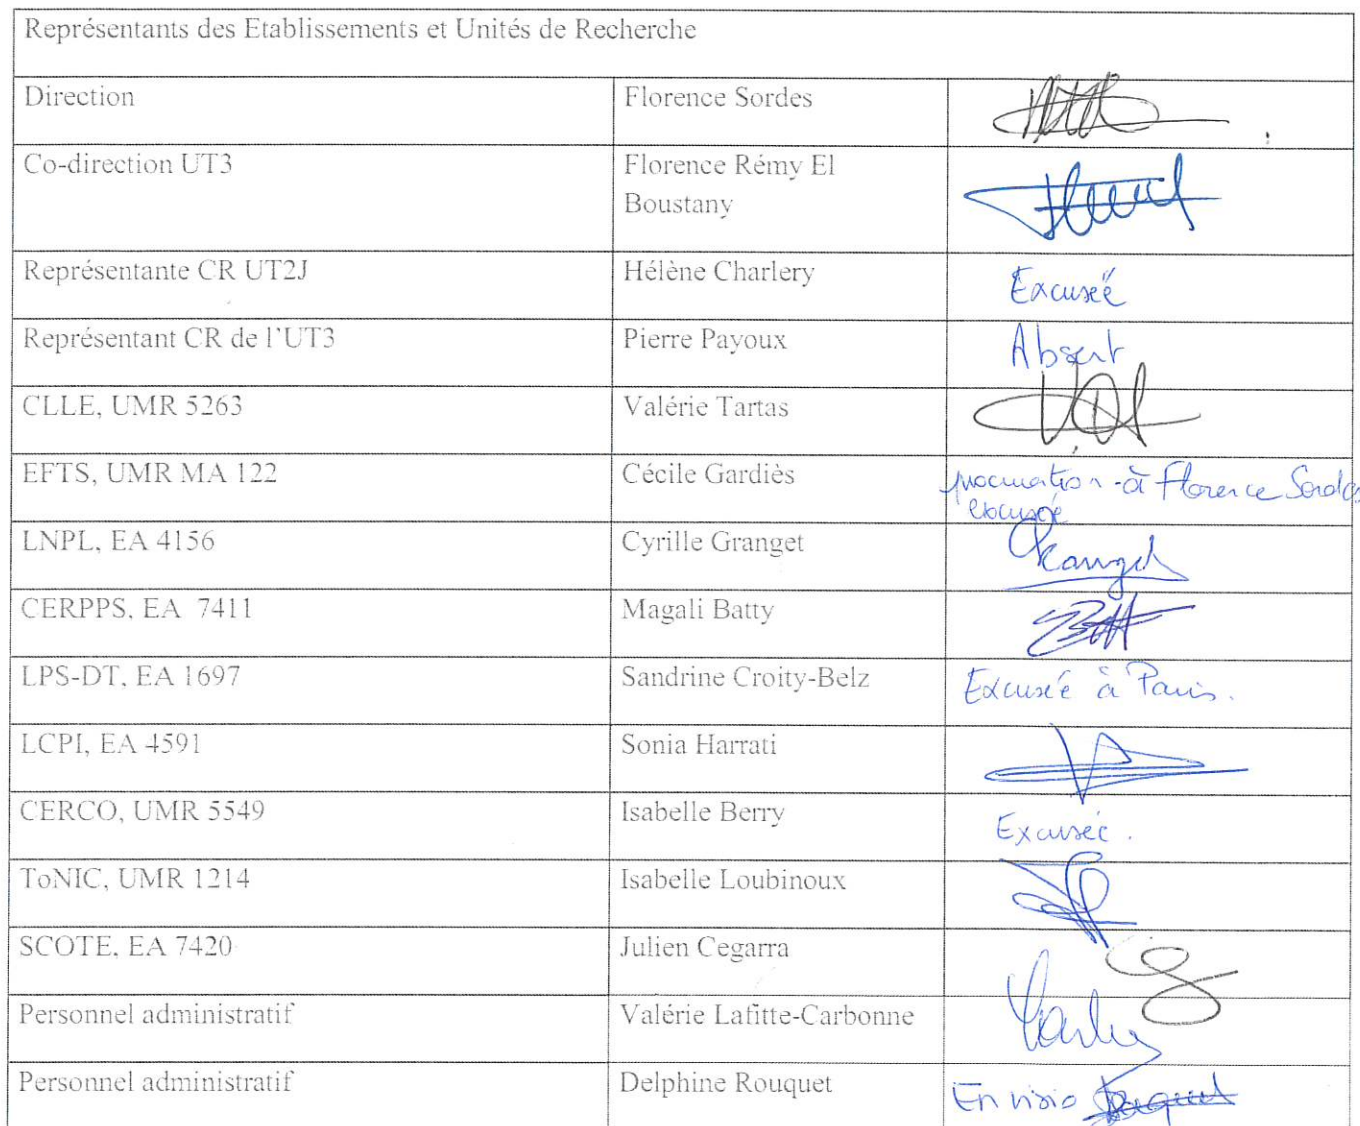 Représentants des Etablissements et Unités de Recherche
Direction Florence Sordes
Co-direction UT3 Florence Rémy El
Boustany
Représentante CR UT2J Hélène Charlery Excusée
Représentant CR de l'UT3 Pierre Payoux Absent
CLLE, UMR 5263 Valérie Tartas
EFTS, UMR MA 122 Cécile Gardiès procuration à Florence Sordes
excusée
LNPL, EA 4156 Cyrille Granget
CERPPS, EA 7411 Magali Batty
LPS-DT, EA 1697 Sandrine Croity-Belz Excusée à Paris.
LCPI, EA 4591 Sonia Harrati
CERCO, UMR 5549 Isabelle Berry Excusée.
ToNIC, UMR 1214 Isabelle Loubinoux
SCOTE, EA 7420 Julien Cegarra
Personnel administratif Valérie Lafitte-Carbonne
Personnel administratif Delphine Rouquet En visio